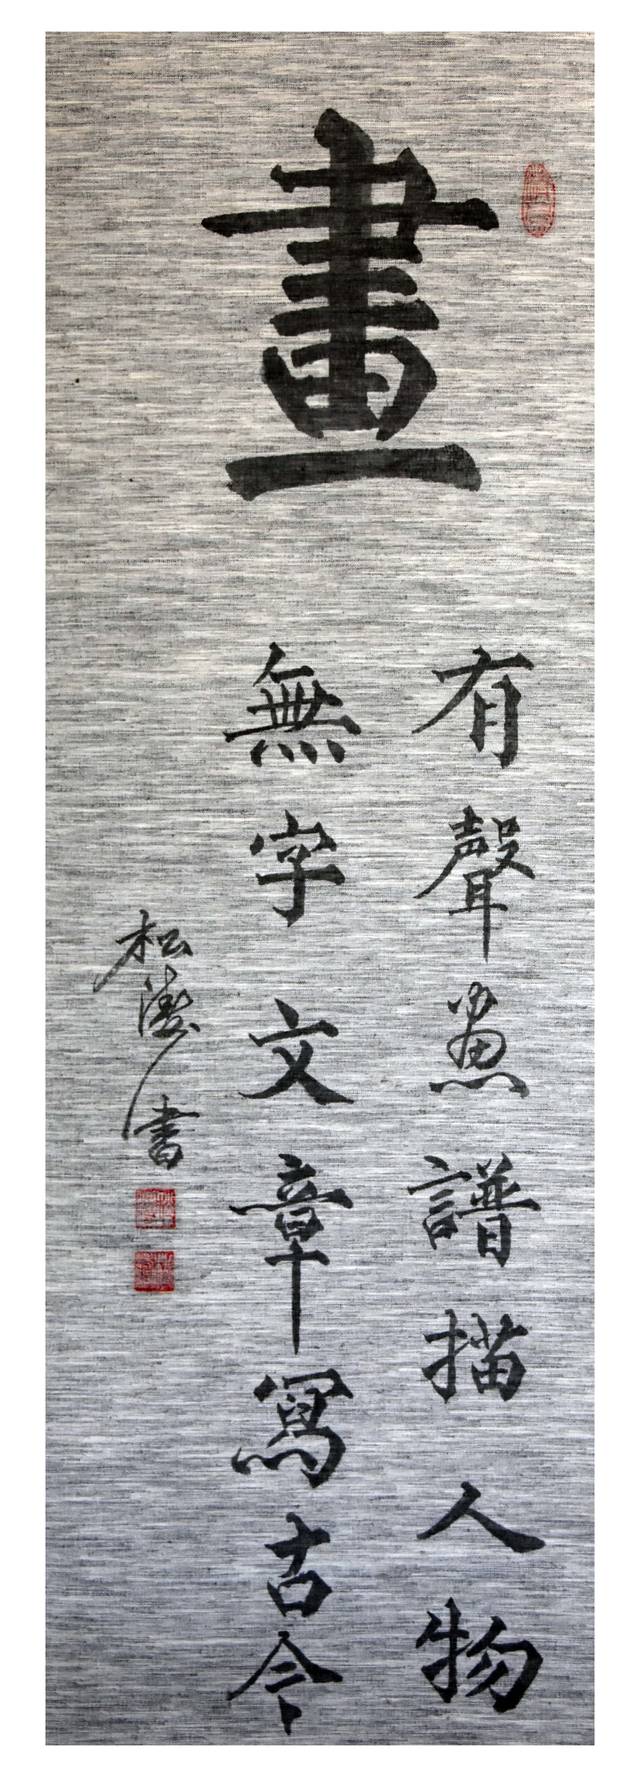 畫
有聲畫譜描人物
無字文章寫古今
松濤書